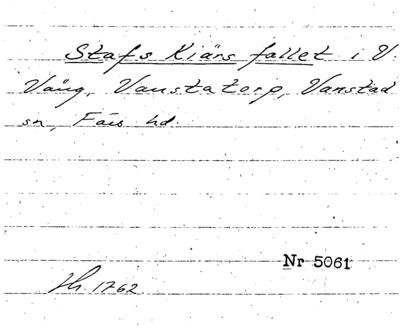 Stafs Kiärs fallet i V.
Vång, Vanstatorp, Vanstad
sn, Färs hd.
Nr 5061
Hh. 1762